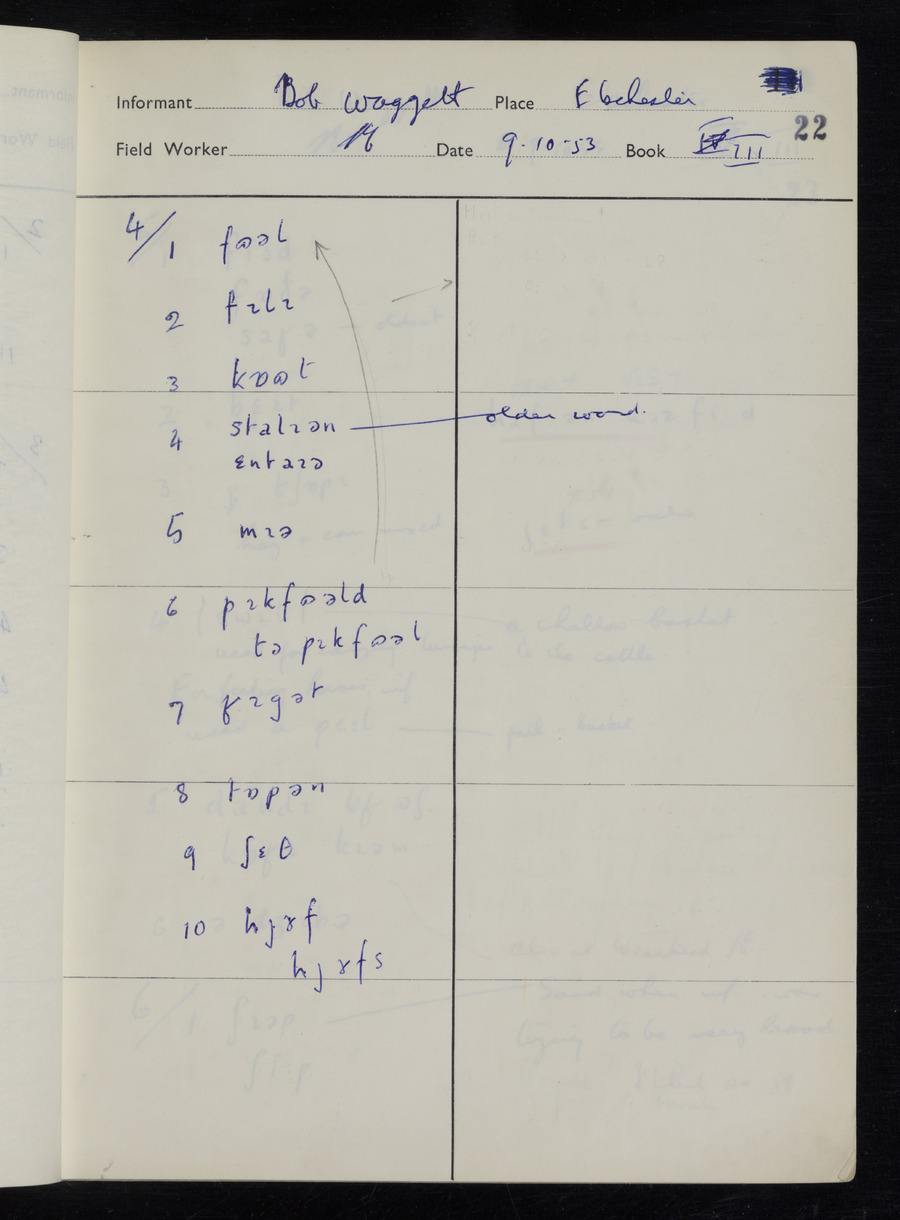 Informant Bob Waggett Place Ebchester
22
Field Worker Date 9-10-53 Book III
4/1 fɷəl
2 fɪlɪ
3 kɒɷt
4 stalɪən — older word.
ɛntaɪə
5 mɪə
6 pɪkfɷəld
tə pɪkfɷəl
7 gɪgət
8 tɒpən
9 ʃɛθ
10 hjɤf
hjɤfs